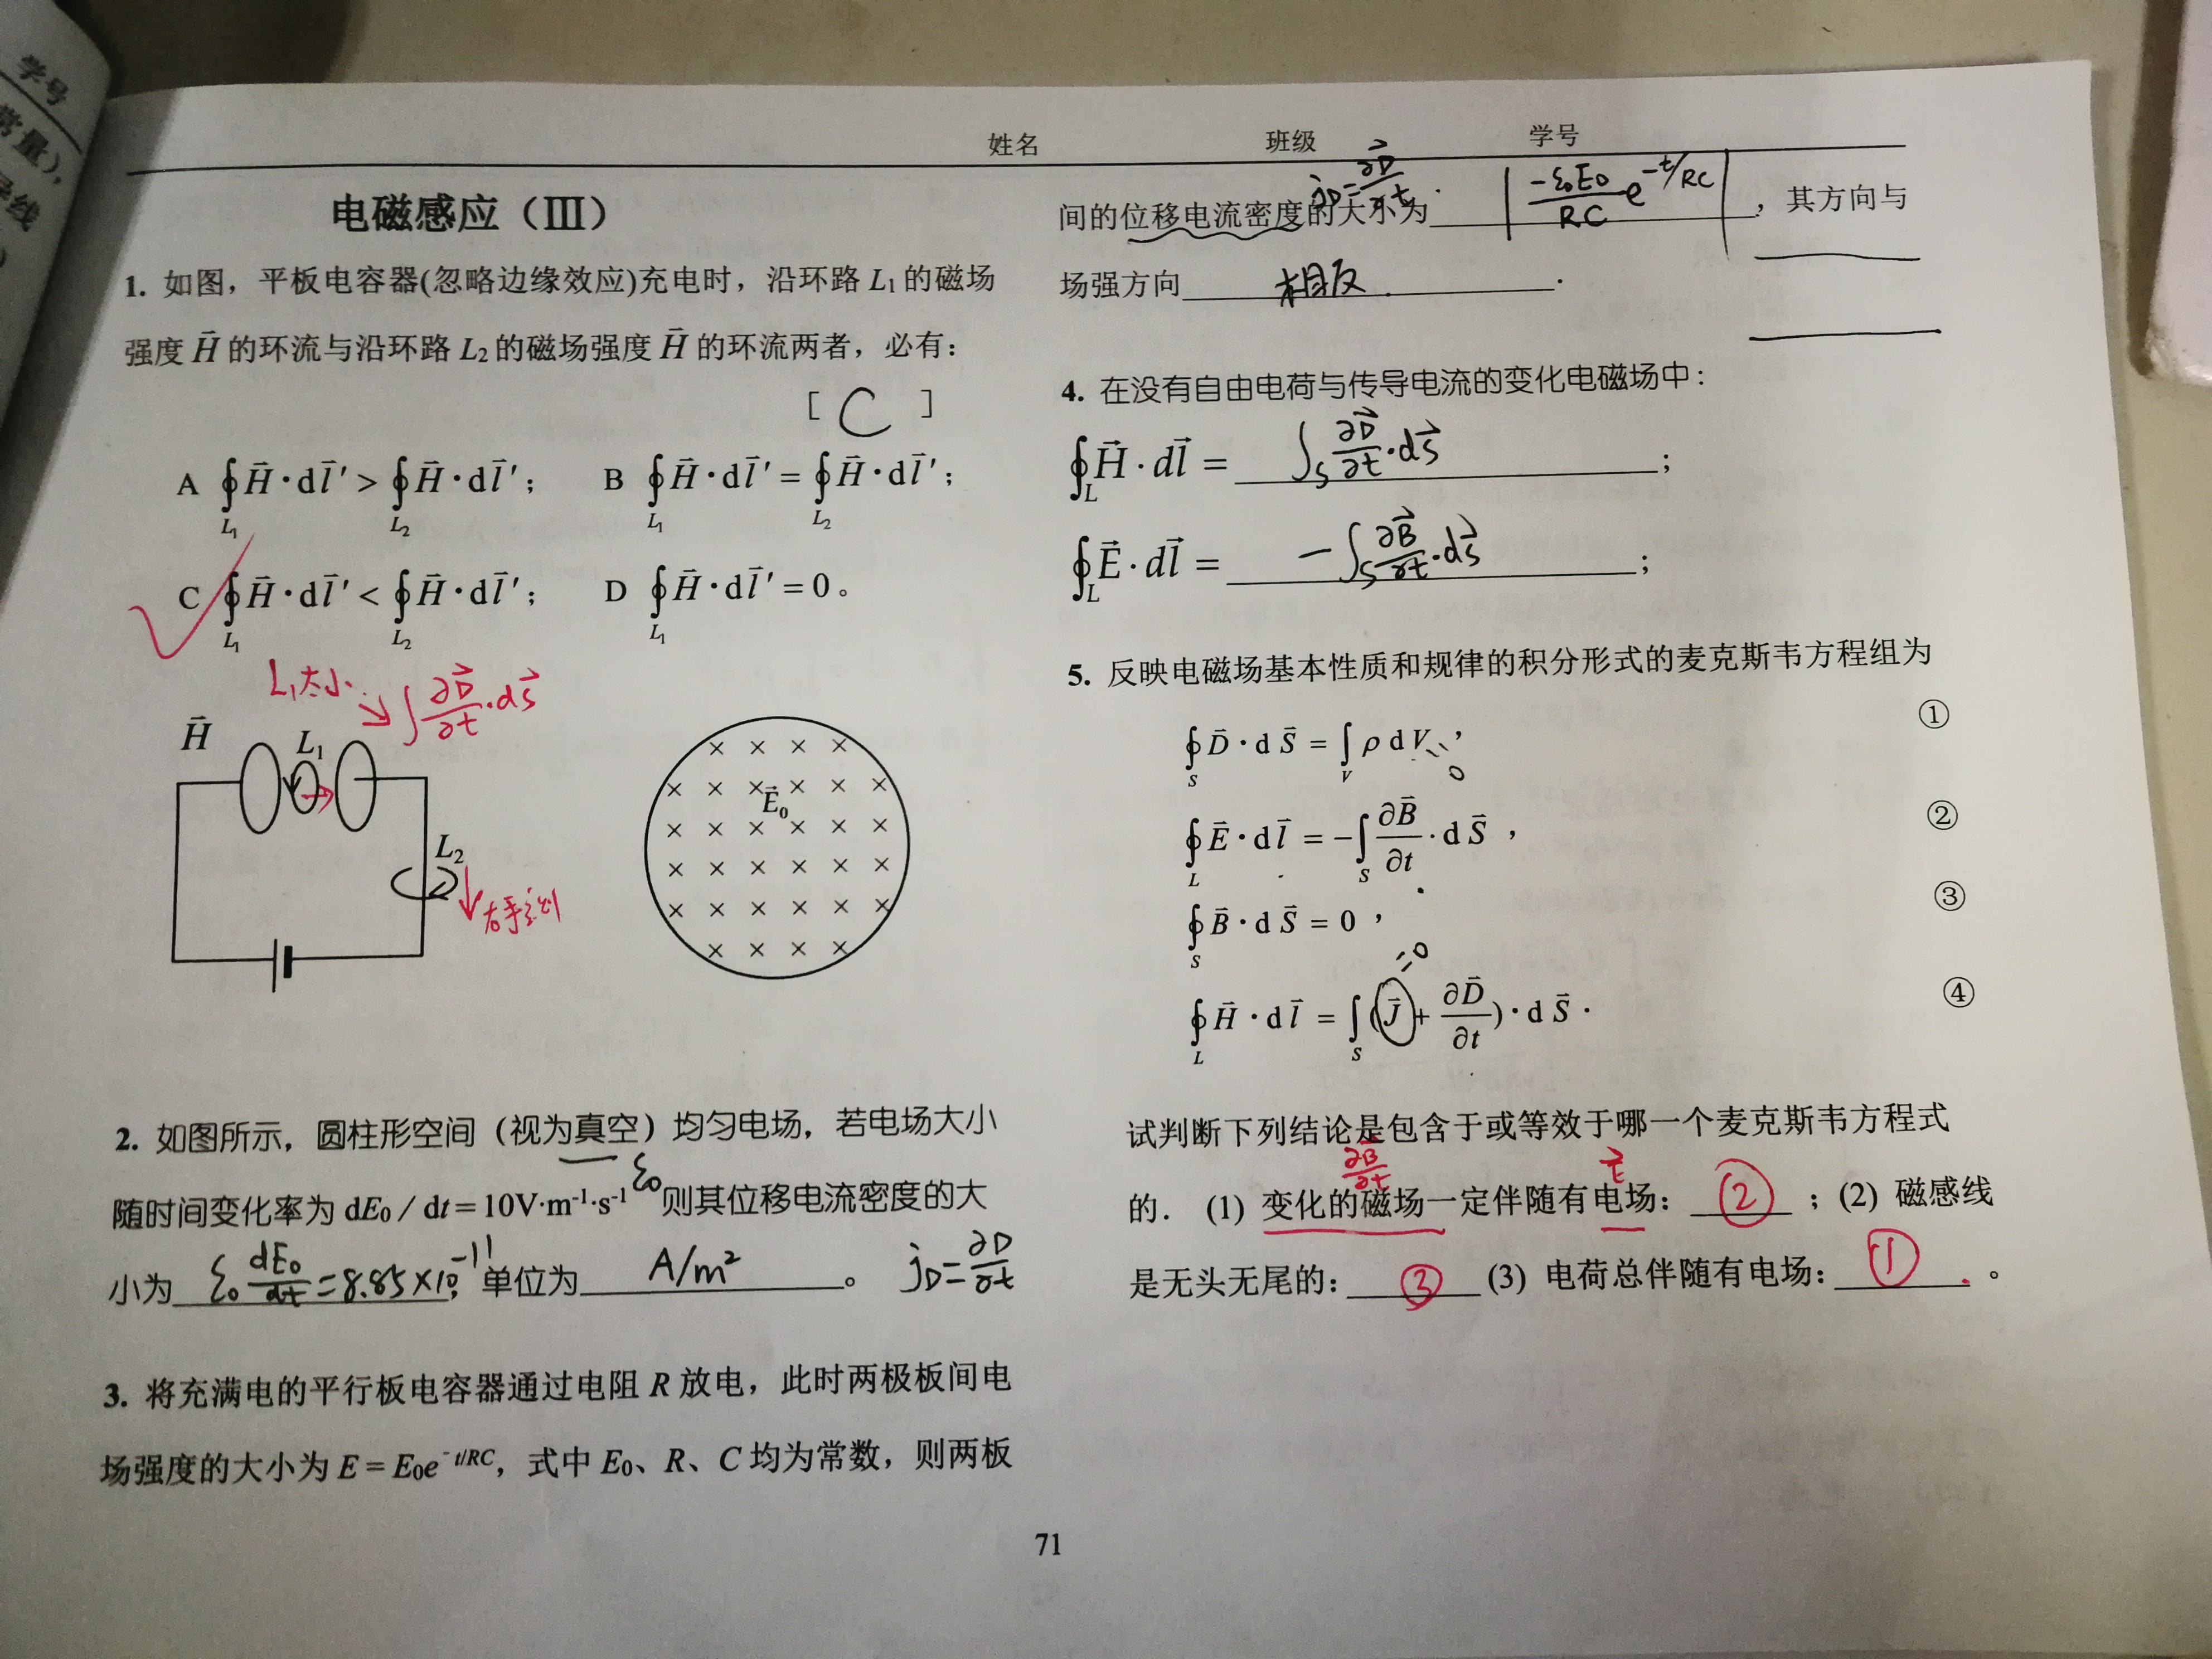 学号
常量),
导线
姓名 班级 学号
电磁感应（III）
1. 如图，平板电容器(忽略边缘效应)充电时，沿环路 L₁ 的磁场
强度 H⃗ 的环流与沿环路 L₂ 的磁场强度 H⃗ 的环流两者，必有：
[ C ]
A ∮_{L₁} H⃗·dl⃗′ > ∮_{L₂} H⃗·dl⃗′； B ∮_{L₁} H⃗·dl⃗′ = ∮_{L₂} H⃗·dl⃗′；
C ∮_{L₁} H⃗·dl⃗′ < ∮_{L₂} H⃗·dl⃗′； D ∮_{L₁} H⃗·dl⃗′ = 0。
L₁太小 ∫ ∂D⃗/∂t·dS⃗
H⃗ L₁
E⃗₀
L₂
右手定则
2. 如图所示，圆柱形空间（视为真空）均匀电场，若电场大小
ε₀
随时间变化率为 dE₀ / dt = 10V·m⁻¹·s⁻¹ 则其位移电流密度的大
小为 ε₀ dE₀/dt = 8.85×10⁻¹¹，单位为 A/m² 。 j_D = ∂D/∂t
3. 将充满电的平行板电容器通过电阻 R 放电，此时两极板间电
场强度的大小为 E = E₀e^{-t/RC}，式中 E₀、R、C 均为常数，则两板
j_D = ∂D⃗/∂t
间的位移电流密度的大小为 |-ε₀E₀/RC e^{-t/RC}| ，其方向与
场强方向 相反 .
4. 在没有自由电荷与传导电流的变化电磁场中：
∮_L H⃗·dl⃗ = ∫_S ∂D⃗/∂t·dS⃗ ；
∮_L E⃗·dl⃗ = -∫_S ∂B⃗/∂t·dS⃗ ；
5. 反映电磁场基本性质和规律的积分形式的麦克斯韦方程组为
∮_S D⃗·dS⃗ = ∫_V ρdV， =0 ①
∮_L E⃗·dl⃗ = -∫_S ∂B⃗/∂t·dS⃗ ， ②
∮_S B⃗·dS⃗ = 0 ， ③
=0
∮_L H⃗·dl⃗ = ∫_S (J⃗ + ∂D⃗/∂t)·dS⃗ . ④
试判断下列结论是包含于或等效于哪一个麦克斯韦方程式
∂B⃗/∂t
的．(1) 变化的磁场一定伴随有电场： ② ；(2) 磁感线
是无头无尾的： ③ (3) 电荷总伴随有电场： ① 。
71